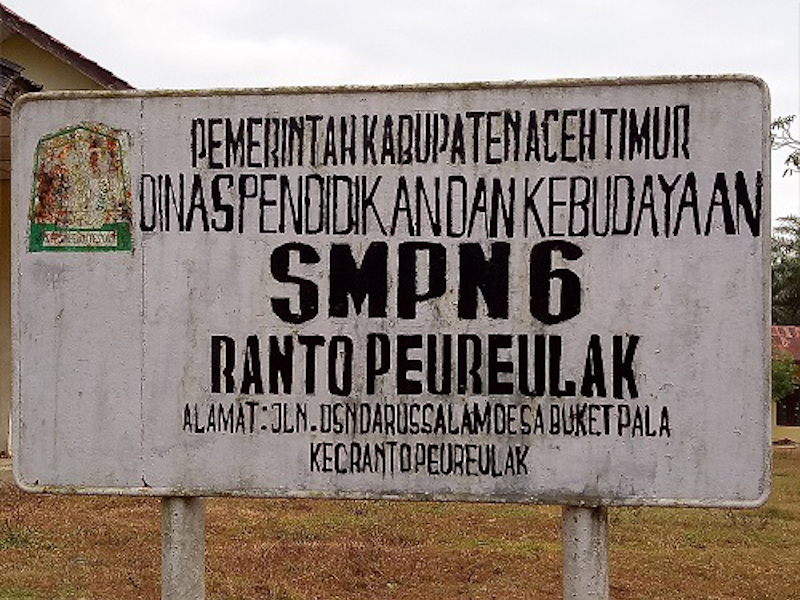 PEMERINTAH KABUPATEN ACEH TIMUR
DINAS PENDIDIKAN DAN KEBUDAYAAN
SMPN 6
RANTO PEUREULAK
ALAMAT : JLN. DSN DARUSSALAM DESA BUKET PALA
KEC RANTO PEUREULAK